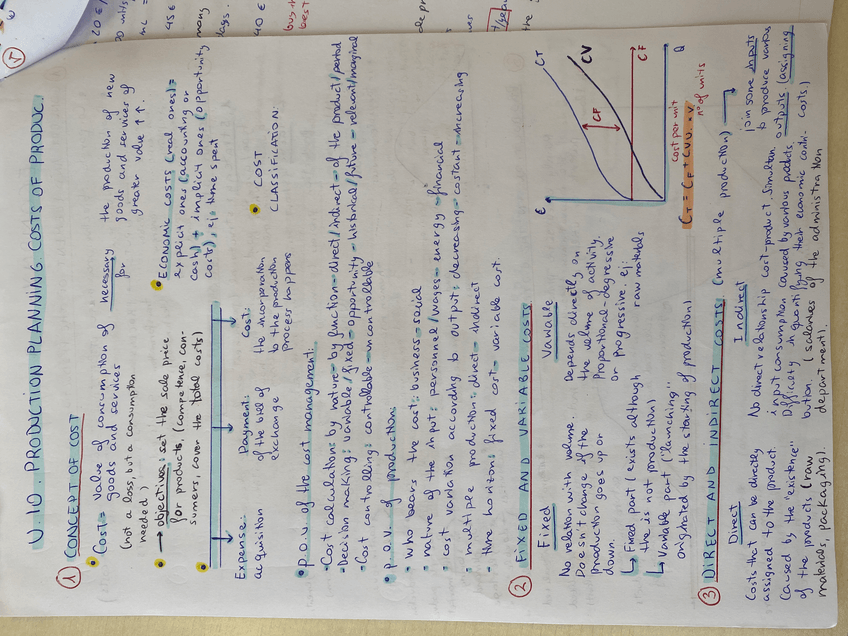 U.10. PRODUCTION PLANNING. COSTS OF PRODUC.
1 CONCEPT OF COST
Cost = value of consumption of goods and services necessary for the production of new goods and services of greater value ↑↑.
(not a loss, but a consumption needed)
→ objectives: set the sale price for products, (competence, consumers, cover the total costs)
ECONOMIC COSTS (real ones) = explicit ones (accounting or cash) + implicit ones (opportunity costs), ej: time spent
Expense: acquisition
Payment: of the bill of exchange
Cost: the incorporation to the production process happens
COST CLASSIFICATION:
P.O.V. of the cost management:
- Cost calculations: by nature - by function - direct/indirect - of the product/period
- Decision making: variable/fixed - opportunity - historical/future - relevant/marginal
- Cost controlling: controllable - uncontrollable
P.O.V. of production:
- who bears the cost: business - social
- nature of the input: personnel/wages - energy - financial
- cost variation according to output: decreasing - costant - increasing
- multiple production: direct - indirect
- time horizon: fixed cost - variable cost.
2 FIXED AND VARIABLE COSTS
Fixed
No relation with volume.
Doesn't change if the
production goes up or
down.
↳ Fixed part (exists although
the is not production)
↳ Variable part ("launching"
originated by the starting of production)
Variable
Depends directly on
the volume of activity.
Proportional - degressive
or progressive. ej:
raw materials
€
CT
CV
CF
CF
Q
CT = CF + CVU · x
cost per unit
nº of units
3 DIRECT AND INDIRECT COSTS (multiple production) →
join some inputs
to produce various
outputs (assigning
costs)
Direct
Costs that can be directly
assigned to the product.
Caused by the "existence"
of the products (raw
materials, packaging).
Indirect
No direct relationship cost-product. Simultan
input consumption caused by various products.
Difficulty in quantifying their economic contri-
bution. (salaries of the administration
department).